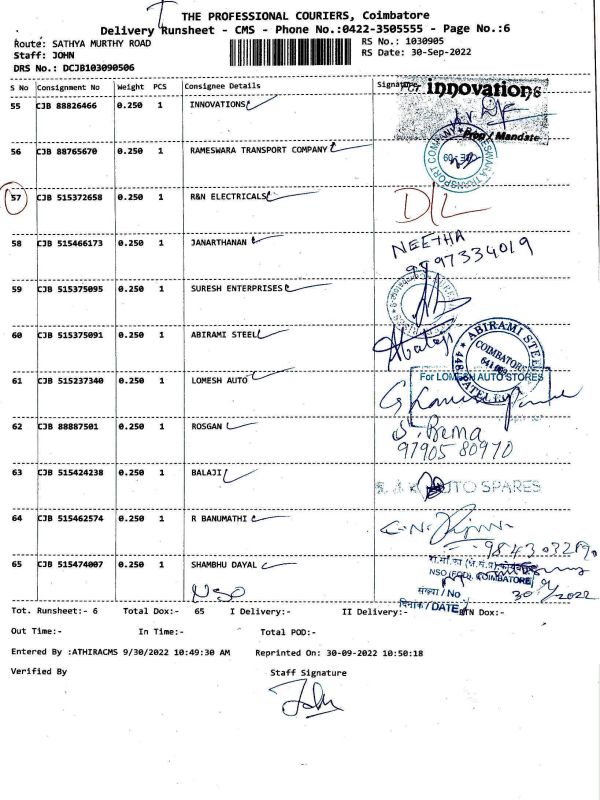 THE PROFESSIONAL COURIERS, Coimbatore
Delivery Runsheet - CMS - Phone No.:0422-3505555 - Page No.:6
Route: SATHYA MURTHY ROAD
RS No.: 1030905
Staff: JOHN
RS Date: 30-Sep-2022
DRS No.: DCJB103090506
S No Consignment No Weight PCS Consignee Details Signature
55 CJB 88826466 0.250 1 INNOVATIONS
For innovations
Prop / Mandate
56 CJB 88765670 0.250 1 RAMESWARA TRANSPORT COMPANY
57 CJB 515372658 0.250 1 R&N ELECTRICALS D/L
58 CJB 515466173 0.250 1 JANARTHANAN NEETHA
9797334019
59 CJB 515375095 0.250 1 SURESH ENTERPRISES
60 CJB 515375091 0.250 1 ABIRAMI STEEL
ABIRAMI STEEL
COIMBATORE
61 CJB 515237340 0.250 1 LOMESH AUTO For LOMESH AUTO STORES
62 CJB 88887501 0.250 1 ROSGAN S. Prema
9790580970
63 CJB 515424238 0.250 1 BALAJI
AUTO SPARES
64 CJB 515462574 0.250 1 R BANUMATHI
9843032190
65 CJB 515474007 0.250 1 SHAMBHU DAYAL
NSO
COIMBATORE
संख्या / No
दिनांक / DATE
Tot. Runsheet:- 6 Total Dox:- 65 I Delivery:- II Delivery:- RTN Dox:-
Out Time:- In Time:- Total POD:-
Entered By :ATHIRACMS 9/30/2022 10:49:30 AM Reprinted On: 30-09-2022 10:50:18
Verified By Staff Signature
John